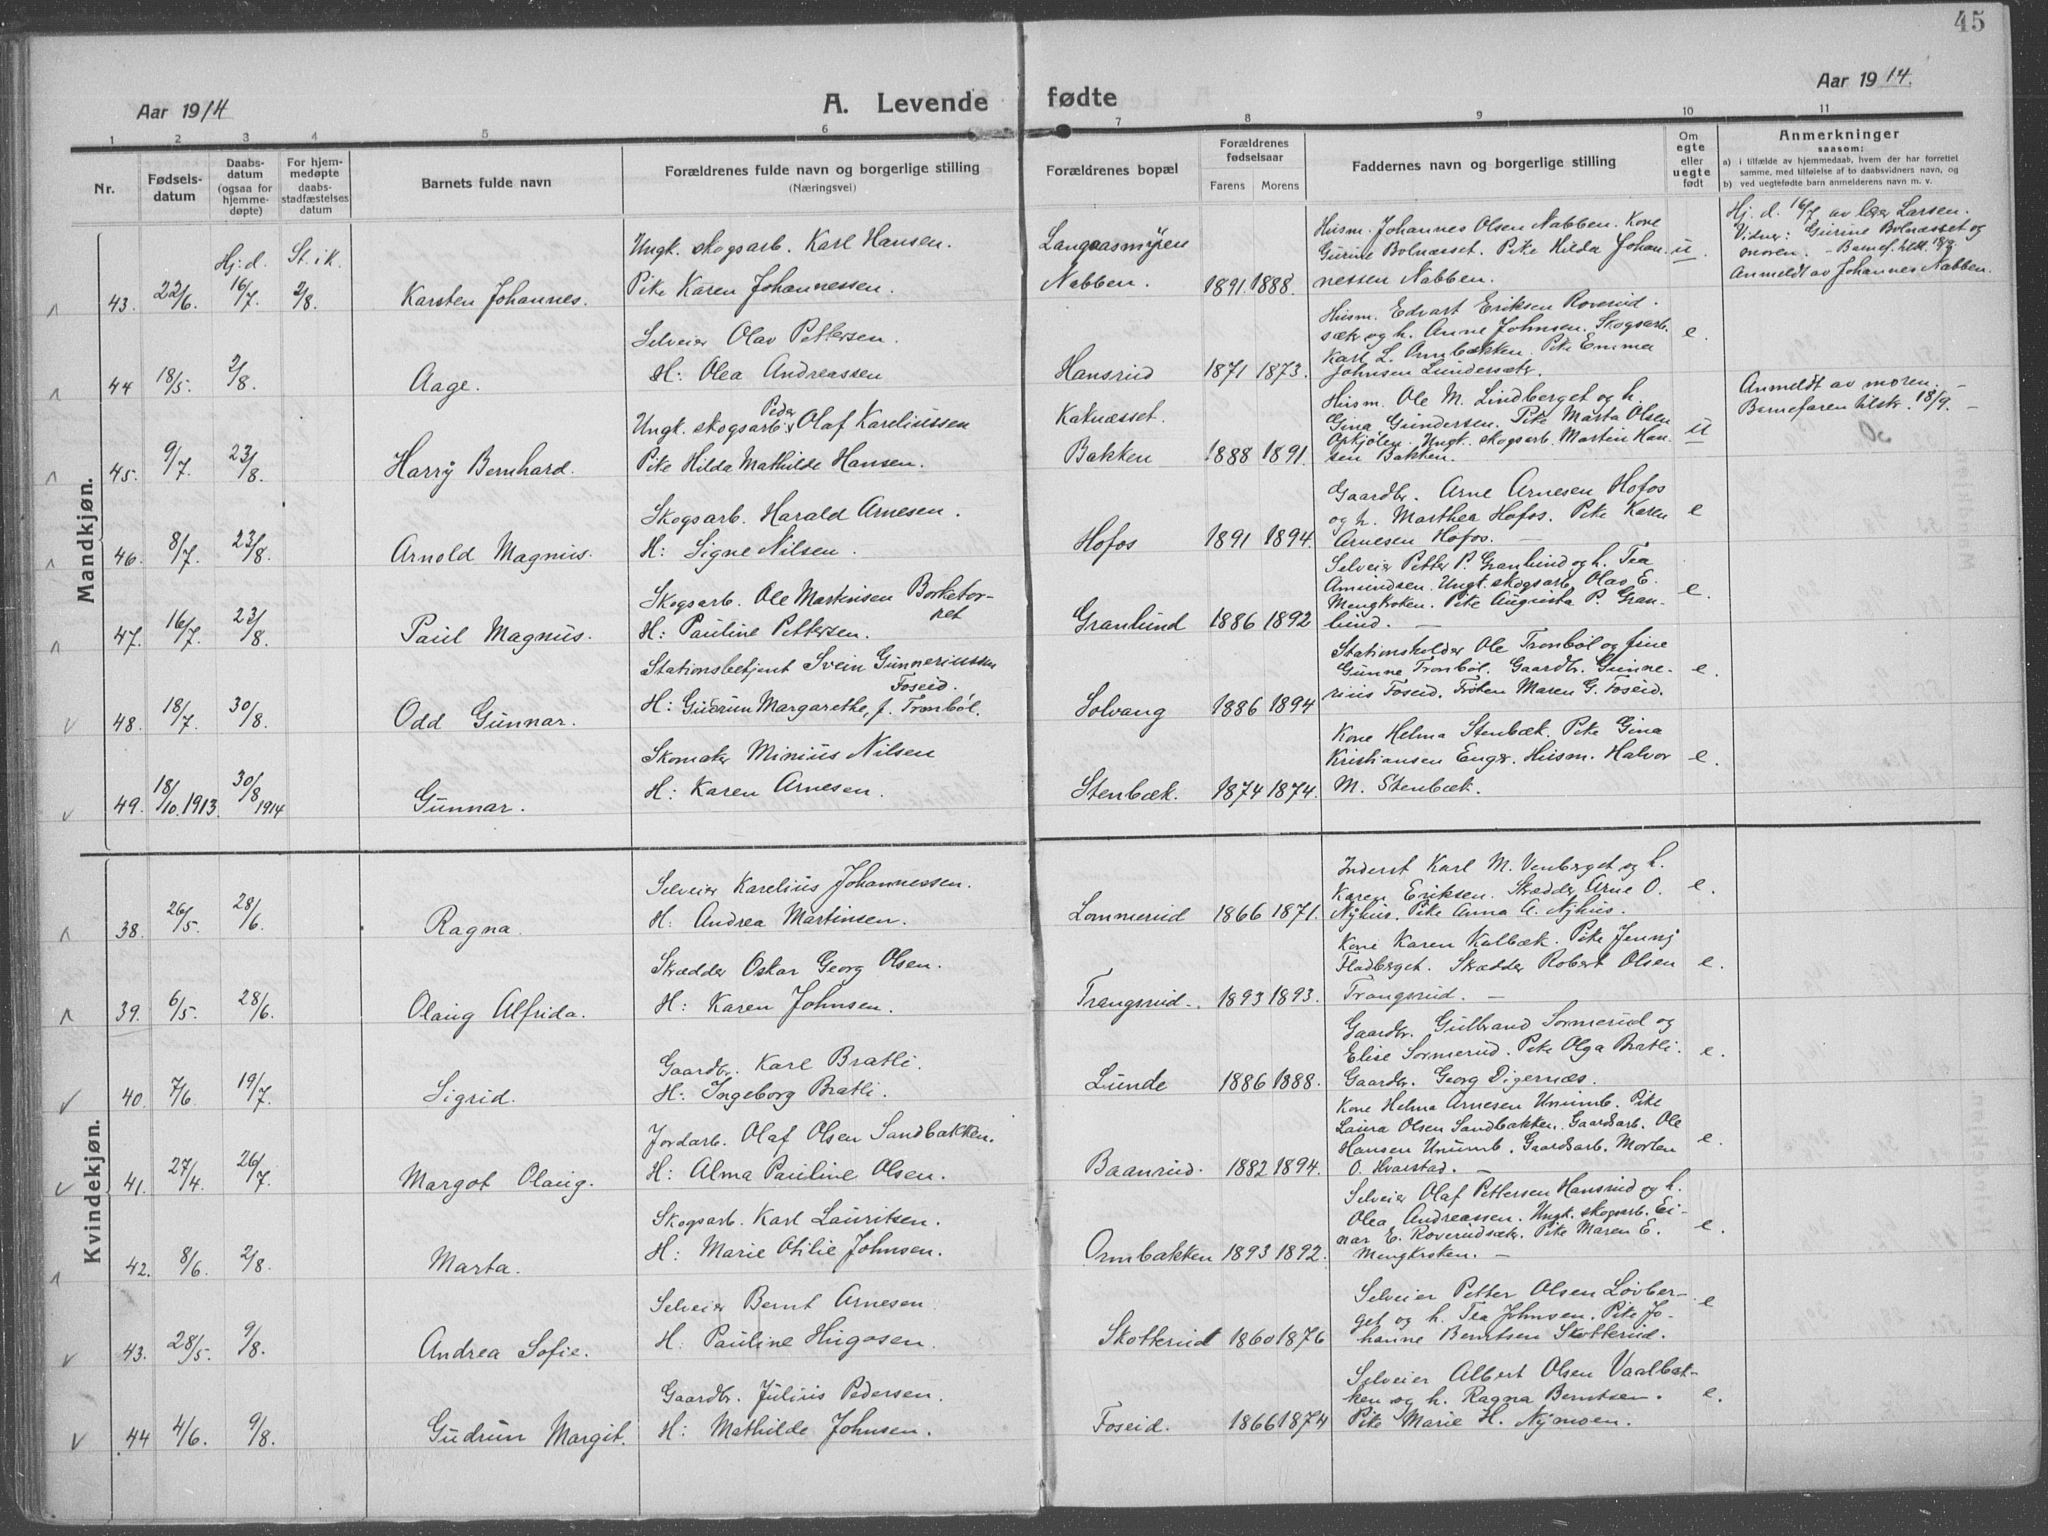 45
Aar 1914
A. Levende fødte
Aar 1914.
1 2 3 4 5 6 7 8 9 10 11
Nr.
Fødsels-
datum
Daabs-
datum
(ogsaa for
hjemme-
døpte)
For hjem-
medøpte
daabs-
stadfæstelses
datum
Barnets fulde navn
Forældrenes fulde navn og borgerlige stilling
(Næringsvei)
Forældrenes bopæl
Forældrenes
fødselsaar
Farens Morens
Faddernes navn og borgerlige stilling
Om
egte
eller
uegte
født
Anmerkninger
saasom:
a) i tilfælde av hjemmedaab, hvem der har forrettet
samme, med tilføielse af to daabsvidners navn, og
b) ved uegtefødte barn anmelderens navn m. v.
Mandkjøn.
43. 22/6. Hj. d. 16/7. St. i k. 2/8. Karsten Johannes.
Ungk. skogsarb. Karl Hansen.
Pike Karen Johannessen.
Langaasmyren
Nabben. 1891. 1888.
Husm. Johannes Olsen Nabben. Kone
Gurine Bolnæsset. Pike Hilda Johan-
nessen Nabben.
u.
Hj. d. 16/7 av læg Larsen.
Vidner: Gurine Bolnæsset og
moren. – Barnef. tilst. 18/9.
Anmeldt av Johannes Nabben.
44 18/5. 2/8. Aage.
Selveier Olav Pettersen.
H: Olea Andreassen
Hansrud 1871 1873.
Husm. Edvart Eriksen Roverud-
sæter og h. Anne Johnsen. Skogsarb.
Karl L. Ormbakken. Pike Emma
Johnsen Lundersæter.
e.
45. 9/7. 23/8. Harry Bernhard.
Ungk. skogsarb. Peder Olaf Kareliussen
Pike Hilda Mathilde Hansen.
Katnæsset.
Bakken 1888 1891.
Husm. Ole M. Lindberget og h.
Gina Gundersen. Pike Marta Olsen
Opkjølen. Ungk. skogsarb. Martin Han-
sen Bakken.
u
Anmeldt av moren. –
Barnefaren tilstr. 18/9. –
46. 8/7. 23/8. Arnold Magnus.
Skogsarb. Harald Arnesen.
H: Signe Nilsen.
Hofos 1891 1894.
Gaardbr. Arne Arnesen Hofos
og h. Marthea Hofos. Pike Karen
Arnesen Hofos. –
e
47. 16/7. 23/8. Paul Magnus.
Skogsarb. Ole Martinsen Borketor-
pet
H: Pauline Pettersen.
Granlund 1886 1892
Selveier Petter P. Granlund og h. Tea
Amundsen. Ungk. skogsarb. Olav E.
Mengkroken. Pike Augusta P. Gran-
lund. –
e.
48. 18/7. 30/8. Odd Gunnar.
Stationsbetjent Svein Gunneriussen
Foseid.
H: Gudrun Margarethe, f. Trønbøl.
Solvang 1886 1894
Stationsholder Ole Trønbøl og frue
Gunne Trønbøl. Gaardbr. Gunne-
rius Foseid. Frøken Maren G. Foseid.
e.
49. 18/10. 1913. 30/8 1914 Gunnar.
Skomaker Minius Nilsen
H: Karen Arnesen.
Stenbæk. 1874 1874.
Kone Helma Stenbæk. Pike Gina
Kristiansen Enger. Husm. Halvor
M. Stenbæk.
e.
Kvindekjøn.
38. 26/5. 28/6. Ragna.
Selveier Karelius Johannessen.
H: Andrea Martinsen.
Lommerud 1866 1871.
Inderst Karl M. Venberget og h.
Karen Eriksen. Skrædder Arne O.
Nyhus. Pike Anna A. Nyhus.
e.
39. 6/5. 28/6. Olaug Alfrida.
Skrædder Oskar Georg Olsen.
H: Karen Johnsen.
Trangsrud. 1893 1893.
Kone Karen Kalbæk. Pike Jenny
Fladberget. Skrædder Robert Olsen
Trangsrud. –
e.
40. 7/6. 19/7. Sigrid.
Gaardbr. Karl Bratli.
H: Ingeborg Bratli.
Lunde 1886 1888.
Gaardbr. Gulbrand Sormerud og
Elise Sormerud. Pike Olga Bratli.
Gaardbr. Georg Digernæs.
e.
41. 27/4. 26/7. Margot Olaug.
Jordarb. Olaf Olsen Sandbakken.
H: Alma Pauline Olsen.
Baanrud. 1882 1894.
Kone Helma Arnesen Unumb. Pike
Laura Olsen Sandbakken. Gaardsarb. Ole
Hansen Unumb. Gaardsarb. Morten
O. Kvarstad. –
e.
42. 8/6. 2/8. Marta.
Skogsarb. Karl Lauritsen.
H: Marie Otilie Johnsen.
Ormbakken 1893 1892.
Selveier Olaf Pettersen Hansrud og h.
Olea Andreassen. Ungk. skogsarb. Ei-
nar E. Roverudsæter. Pike Maren E.
Mengkroken. –
e.
43. 28/5. 9/8. Andrea Sofie.
Selveier Bernt Arnesen
H: Pauline Hugosen.
Skotterud 1860 1876
Selveier Petter Olsen Løvber-
get og h. Tea Johnsen. Pike Jo-
hanne Berntsen Skotterud.
e
44 4/6. 9/8. Gudrun Margit.
Gaardbr. Julius Pedersen.
H: Mathilde Johnsen.
Foseid. 1866 1874
Selveier Albert Olsen Vaalbak-
ken og h. Ragna Berntsen.
Pike Marie H. Nymoen.
e.